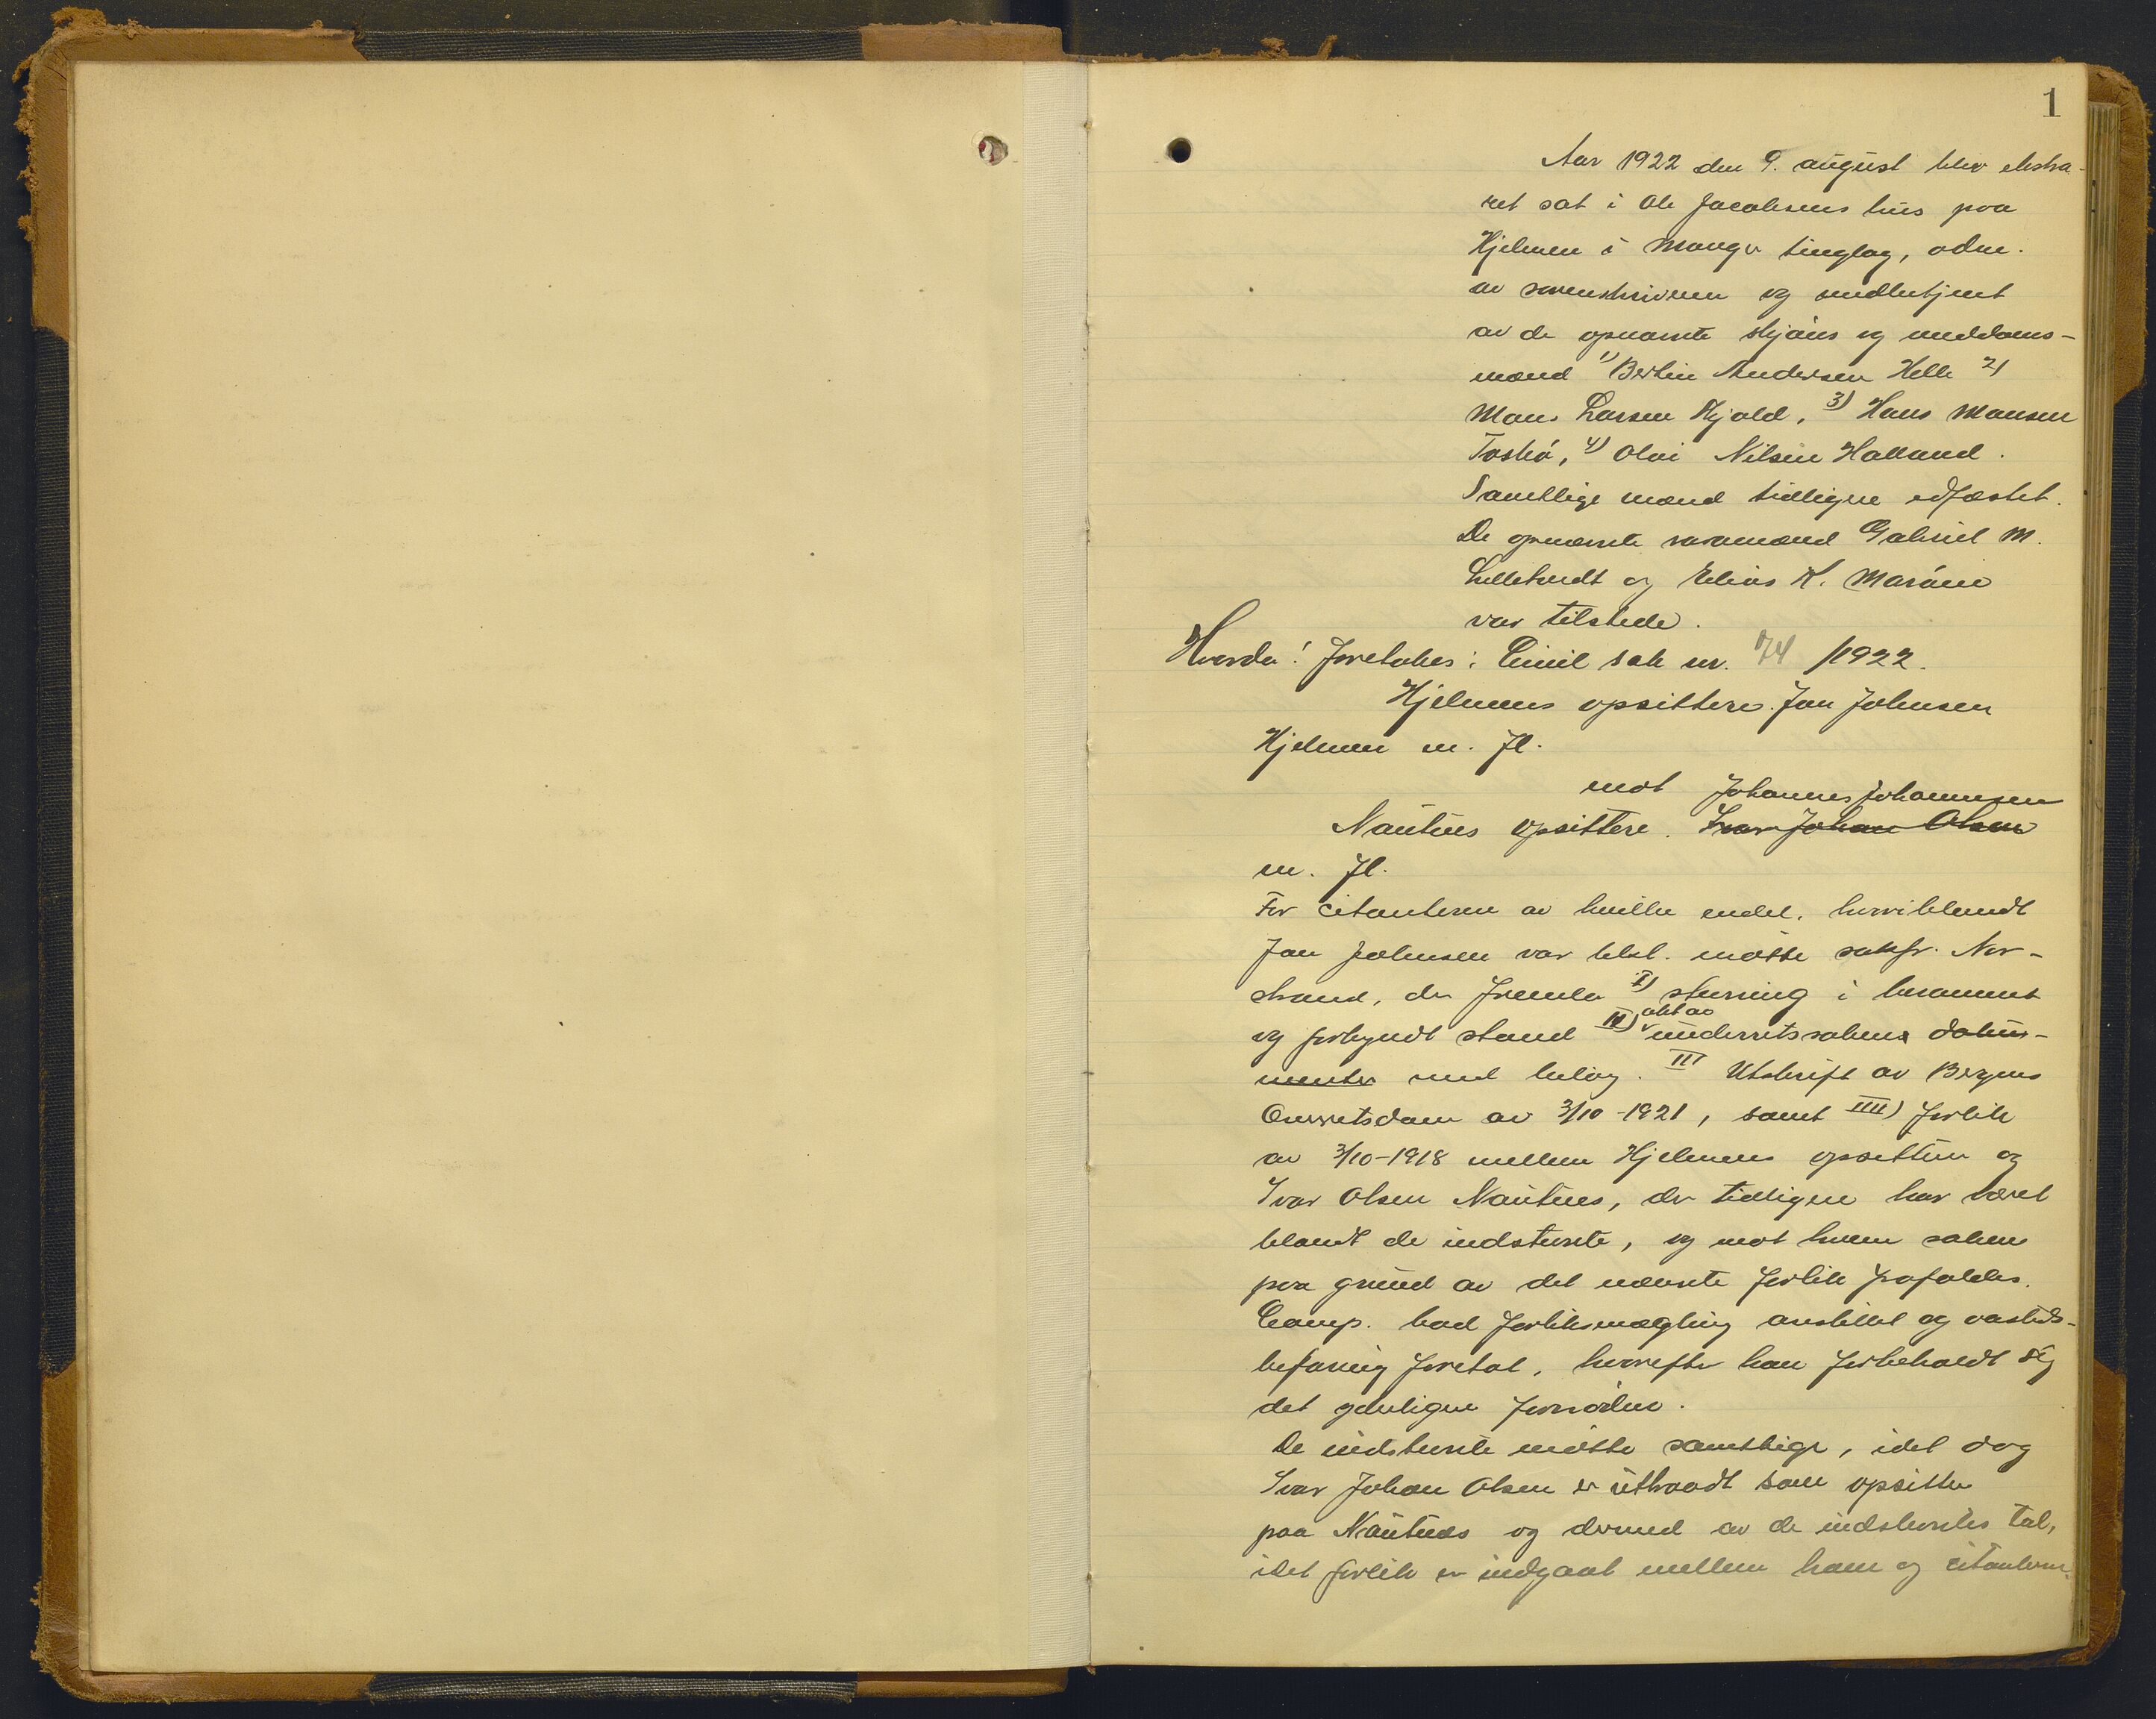 1
Aar 1922 den 9. august blev ekstra-
ret sat i Ole Jacobsens hus paa
Hjelmen i Manger tinglag, adm.
av sorenskriveren og meddbetjent
av de opnævnte skjøns og meddoms-
mænd 1) Bertin Andersen Helle 2)
Mons Larsen Kjold, 3) Hans Monsen
Toskø, 4) Olai Nilsen Halland.
Samtlige mænd tidligere edfæstet.
De opnævnte varamænd Gabriel M.
Lilletvedt og Elias K. Marøen
var tilstede.
Hvorda! Foretokes: Civil sak nr. 74/1922.
Hjelmens opsittere. Jan Johnsen
Hjelmen m. fl.
mot Johannes Johannesen
Nautnes opsittere. Ivar Johan Olsen
m. fl.
For citanterne av hvilke endel, hvoriblandt
Jan Johnsen var tilst. møtte sakfr. Nor-
strand, der fremla I) stevning i berammet
og forkyndt stand II) akt av underretssakens doku-
menter med bilag. III Utskrift av Bergens
Overretsdom av 3/10-1921, samt IIII) Forlik
av 3/10-1918 mellem Hjelmens opsittere og
Ivar Olsen Nautnes, der tidligere har været
blandt de indstevnte, og mot hvem saken
paa grund av det nævnte forlik frafaldes.
Comp. bad forliksmægling anstillet og aasteds-
befaring foretat, hvorefter han forbeholdt sig
det yderligere fornødne.
De indstevnte møtte samtlige, idet dog
Ivar Johan Olsen er uttraadt som opsitter
paa Nautnes og dermed av de indstevntes tal,
idet forlik er indgaat mellem ham og citanterne.